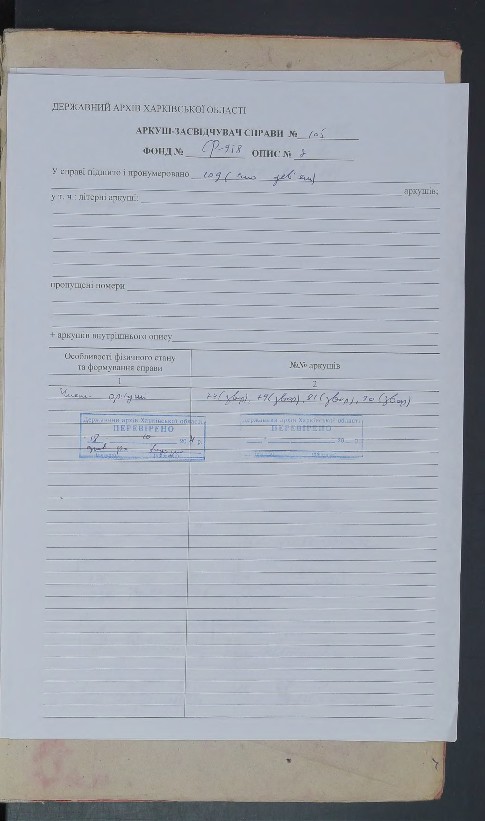 ДЕРЖАВНИЙ АРХІВ ХАРКІВСЬКОЇ ОБЛАСТІ
АРКУШ-ЗАСВІДЧУВАЧ СПРАВИ №
ФОНД № ОПИС № 2
У справі підшито і пронумеровано 109 (сто дев'ять)
аркушів,
у т. ч.: літерні аркуші:
пропущені номери
+ аркушів внутрішнього опису
Особливості фізичного стану та формування справи
№№ аркушів
1
2
(звор), (звор), (звор), (звор)
Державний архів Харківської області
ПЕРЕВІРЕНО
10 20 р.
Державний архів Харківської області
ПЕРЕВІРЕНО
20 р.